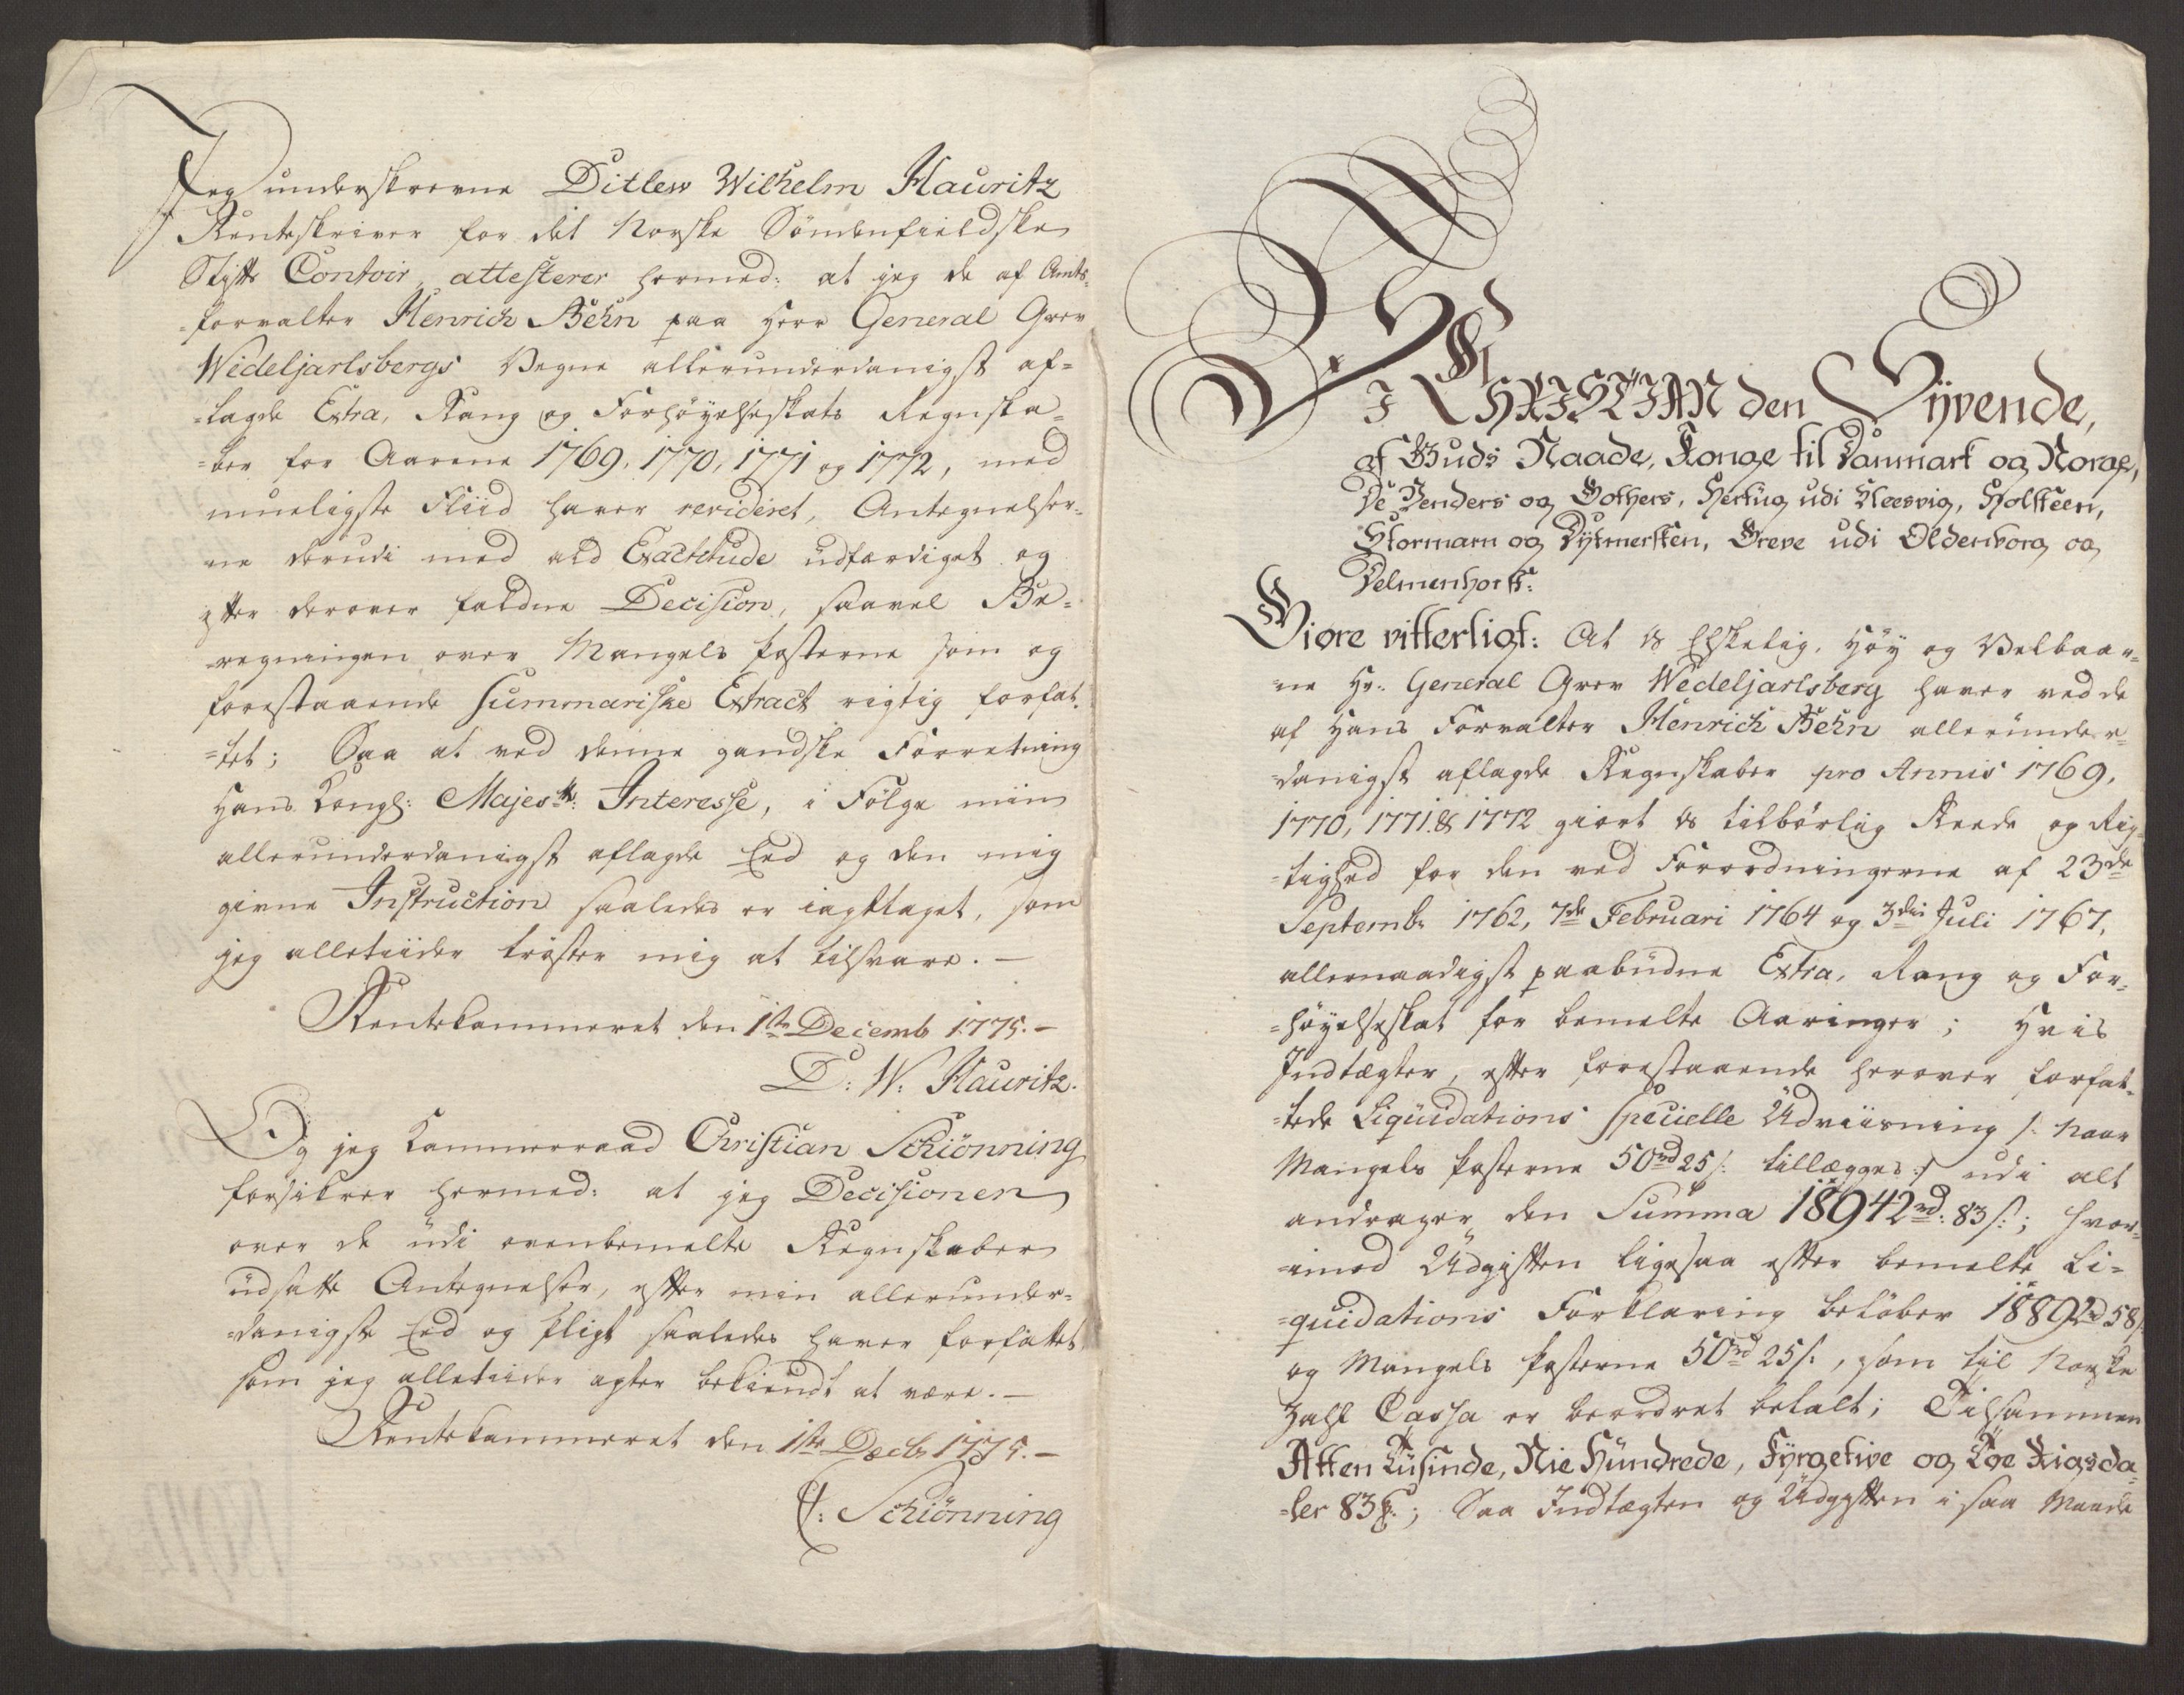 Jeg underskrevne Ditlew Wilhelm Hauritz
Renteskriver for det Norske Söndenfieldske
Stifts Contoir, attesterer hermed: at jeg de af Amts-
-forvalter Henrich Behn paa Herr General Grev
Wedeljarlsbergs Vegne allerunderdanigst af-
-lagde Extra, Rang og Forhöyelseskats Regnska-
-ber for Aarene 1769, 1770, 1771 og 1772, med
mueligste Fliid haver revideret, Antegnelser-
ne derudi med ald Exactitude udfærdiget og
efter derover faldne Decision, saavel Be-
-regningen over Mangels Posterne som og
forestaaende Summariske Extract rigtig forfat-
-tet; Saa at ved denne gandske Forretning
Hans Kongl: Majestts: Interesse, i Fölge min
allerunderdanigst aflagde Eed og den mig
givne Instruction saaledes er iagttaget, som
jeg alletiider tröster mig at tilsvare. —
Rentekammeret den 1ste Decemb 1775. —
D: W: Hauritz.
Og jeg Kammerraad Christian Schiönning
forsikrer hermed: at jeg Decisionen
over de udi ovenbemelte Regnskaber
udsatte Antegnelser, efter min allerunder-
-danigste Eed og Pligt saaledes haver forfattet,
som jeg alletiider agter bekiendt at være. —
Rentekammeret den 1ste Decbr 1775. —
C: Schiönning
VI CHRISTIAN den Syvende,
af Guds Naade, Konge til Danmark og Norge,
De Venders og Gothers, Hertug udi Slesvig, Holsteen,
Stormarn og Dytmersken, Greve udi Oldenborg og
Delmenhorst:
Giöre vitterligt: At Os Elskelig, Höy og Velbaar-
-ne Hr: General Grev Wedeljarlsberg haver ved de
af Hans Forvalter Henrich Behn allerunder-
-danigst aflagde Regnskaber pro Annis 1769,
1770, 1771 & 1772 giort Os tilbörlig Reede og Rig-
-tighed for den ved Forordningerne af 23de
Septembr 1762, 7de Februari 1764 og 3die Juli 1767,
allernaadigst paabudne Extra, Rang og For-
-höyelseskat for bemelte Aaringer; Hvis
Indtægter, efter forestaaende herover forfat-
-tede Liquidations Specielle Udviisning /: naar
Mangels Posterne 50rd 25 s: tillægges :/ udi alt
andrager den Summa 18942rd: 83 s:; hvor-
-imod Udgiften ligesaa efter bemelte Li-
-quidations Forklaring belöber 18892rd 58 s
og Mangels Posterne 50rd 25 s:, som til Norske
Zahl Cassa er beordret betalt; Tilsammen
Atten Tusinde, Nie Hundrede, Fyrgetive og Toe Rigsda-
-ler 83 s:; Saa Indtægten og Udgiften i saa Maade